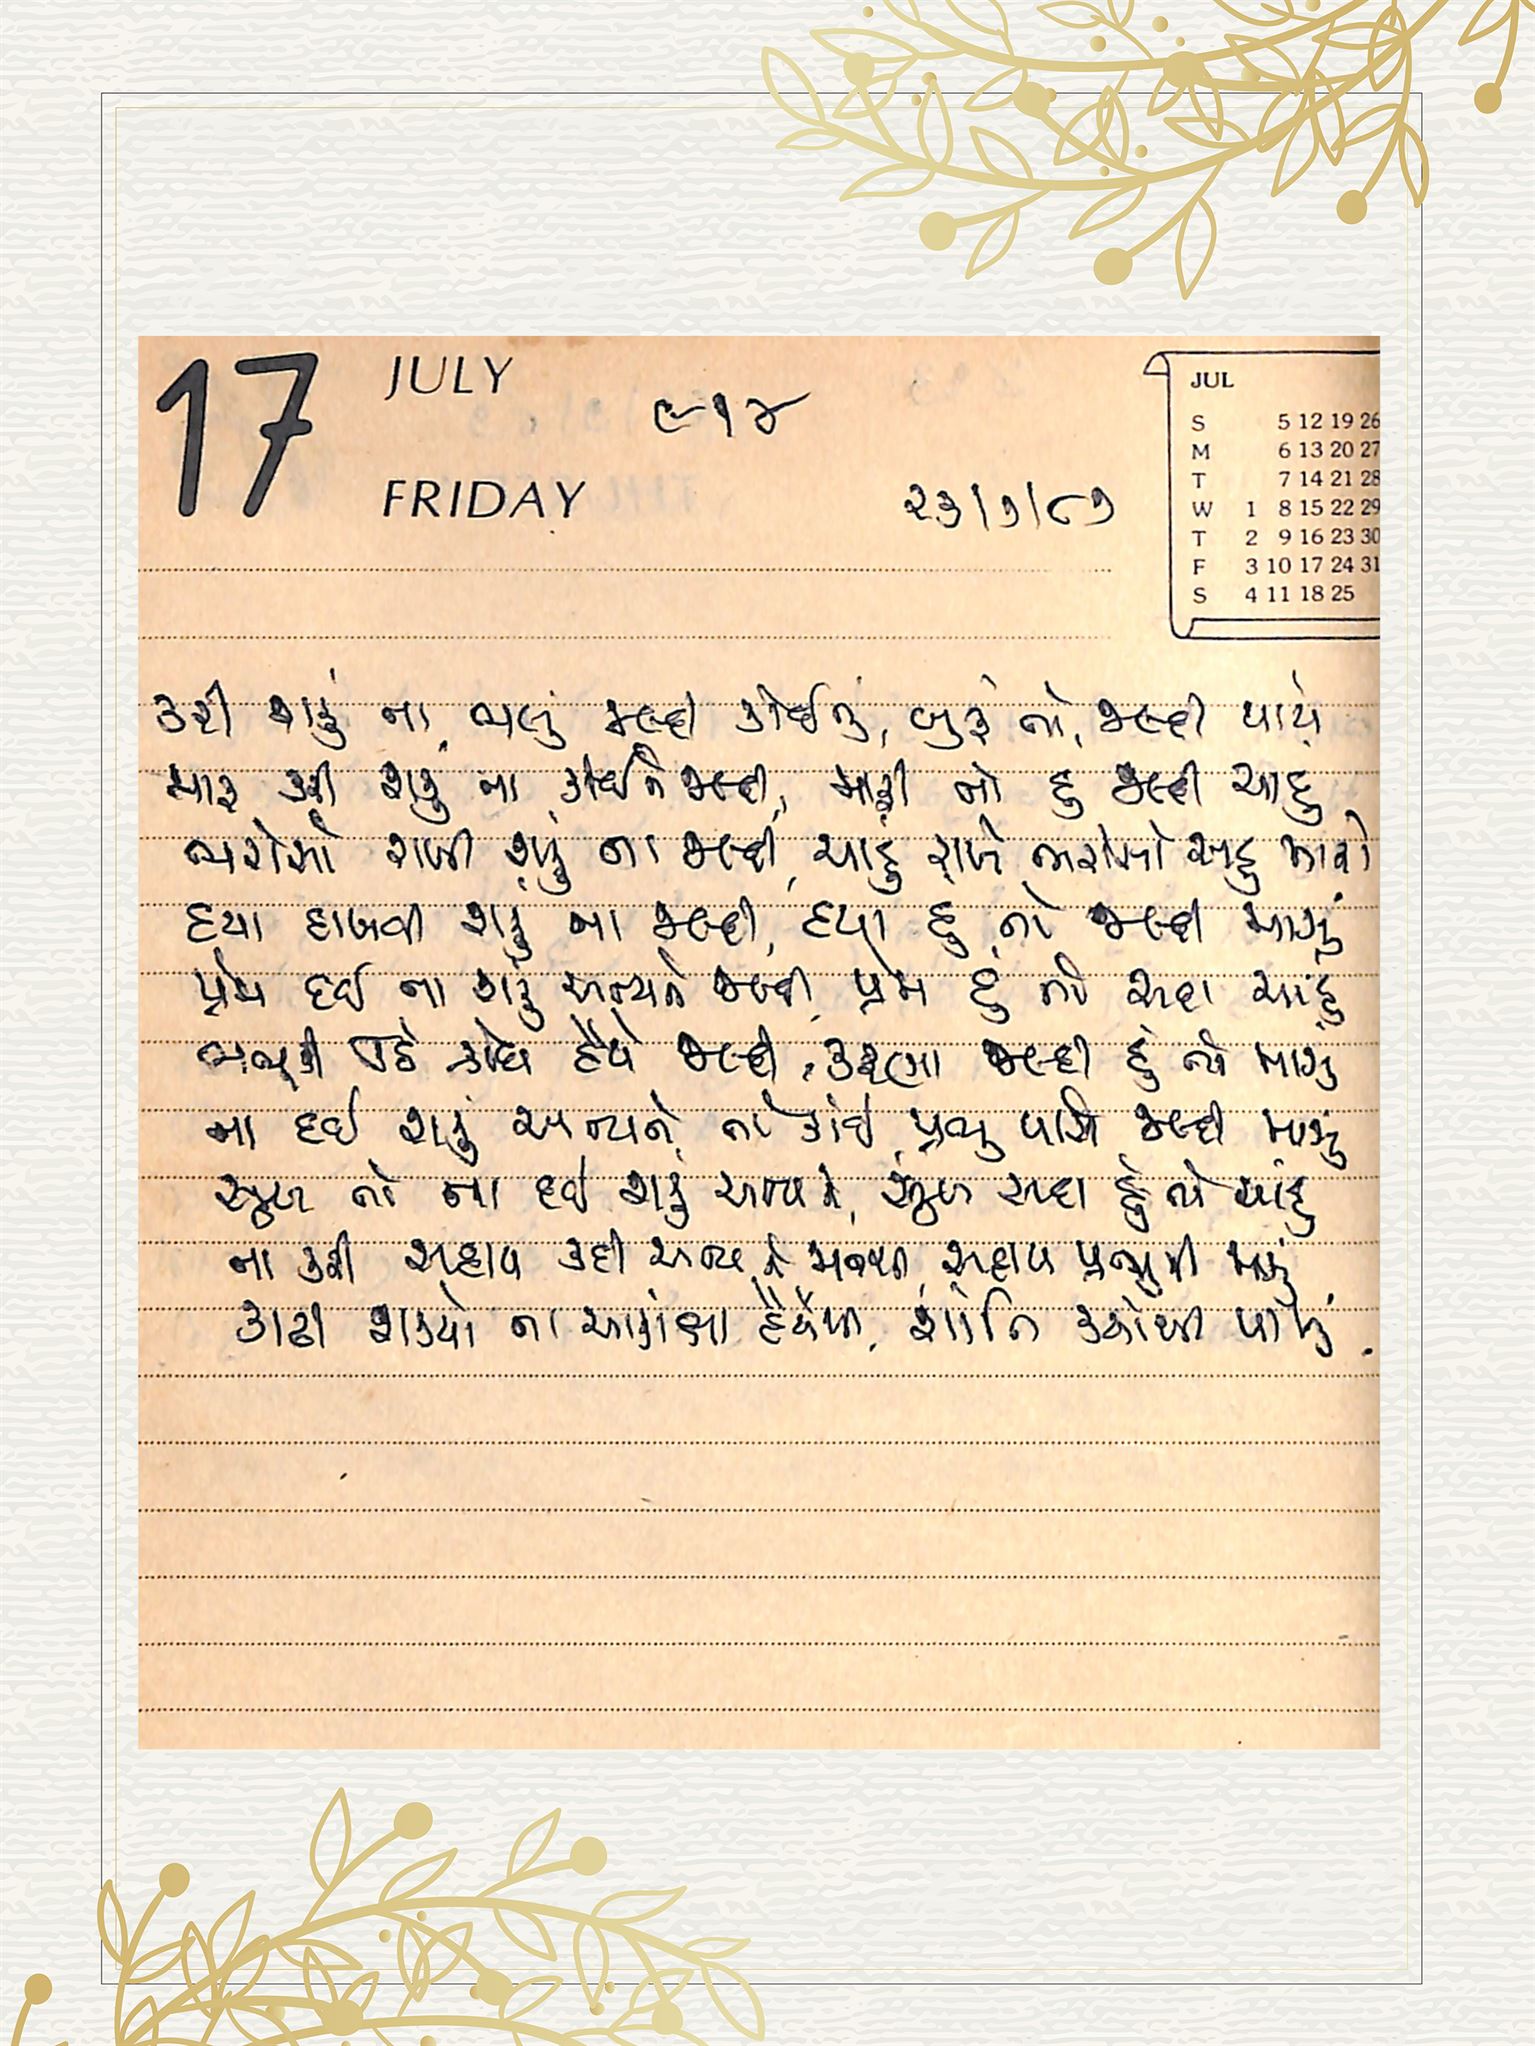 17 JULY ૯૧૪
FRIDAY ૨૩/૭/૮૭
JUL
S 5 12 19 26
M 6 13 20 27
T 7 14 21 28
W 1 8 15 22 29
T 2 9 16 23 30
F 3 10 17 24 31
S 4 11 18 25
કરી શકું ના ભલું જલ્દી કોઈનું, બુરૂં તો, જલ્દી થાયે
માફ કરી શકું ના કોઈને જલ્દી, માફી તો હું જલ્દી ચાહું
ભરોસો રાખી શકું ના જલ્દી, ચાહું રાખે ભરોસો સહુ મારો
દયા દાખવી શકું ના જલ્દી, દયા હું તો જલ્દી માગું
પ્રેમ દઈ ના શકું અન્યને જલ્દી, પ્રેમ હું તો સદા ચાહું
ભભૂકી ઊઠે ક્રોધ હૈયે જલ્દી, કરૂણા જલ્દી હું તો માગું
ના દઈ શકું અન્યને તો કાંઈ, પ્રભુ પાસે જલ્દી માગું
સુખ તો ના દઈ શકું અન્યને, સુખ સદા હું તો ચાહું
ના કરી સહાય કદી અન્યને, સહાય પ્રભુની માગું
કાઢી શક્યો ના આકાંક્ષા હૈયેથી, શાંતિ ક્યાંથી પામું.